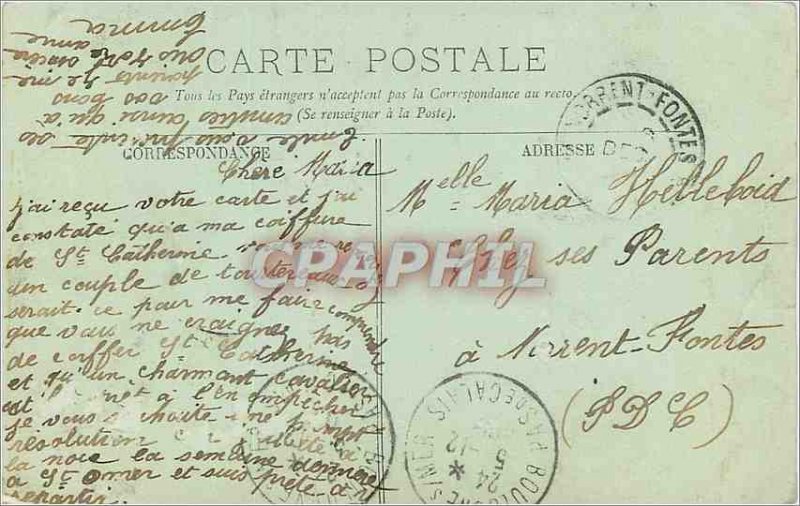 CARTE POSTALE
Tous les Pays étrangers n'acceptent pas la Correspondance au recto
(Se renseigner à la Poste).
CORRESPONDANCE
ADRESSE
Chère Maria
j'ai reçu votre carte et j'ai
constaté qu'a ma coiffure
de St Catherine
un couple de tourtereaux
serait-ce pour me faire comprendre
que vous ne craignez pas
de coiffer St Catherine
et qu'un charmant cavalier
est prêt à l'en empêcher
je vous souhaite une prompt
resolution
la noce la semaine dernière
à St Omer et suis prête à
repartir
Emile vous présente ses
amitiés ainsi qu'à
vos bons
parents
votre amie
Emma
Melle Maria Helleboid
Chez ses Parents
à Norrent-Fontes
(P D C)
NORRENT-FONTES
BOULOGNE S MER
PAS DE CALAIS
24
5-12
CPAPHIL